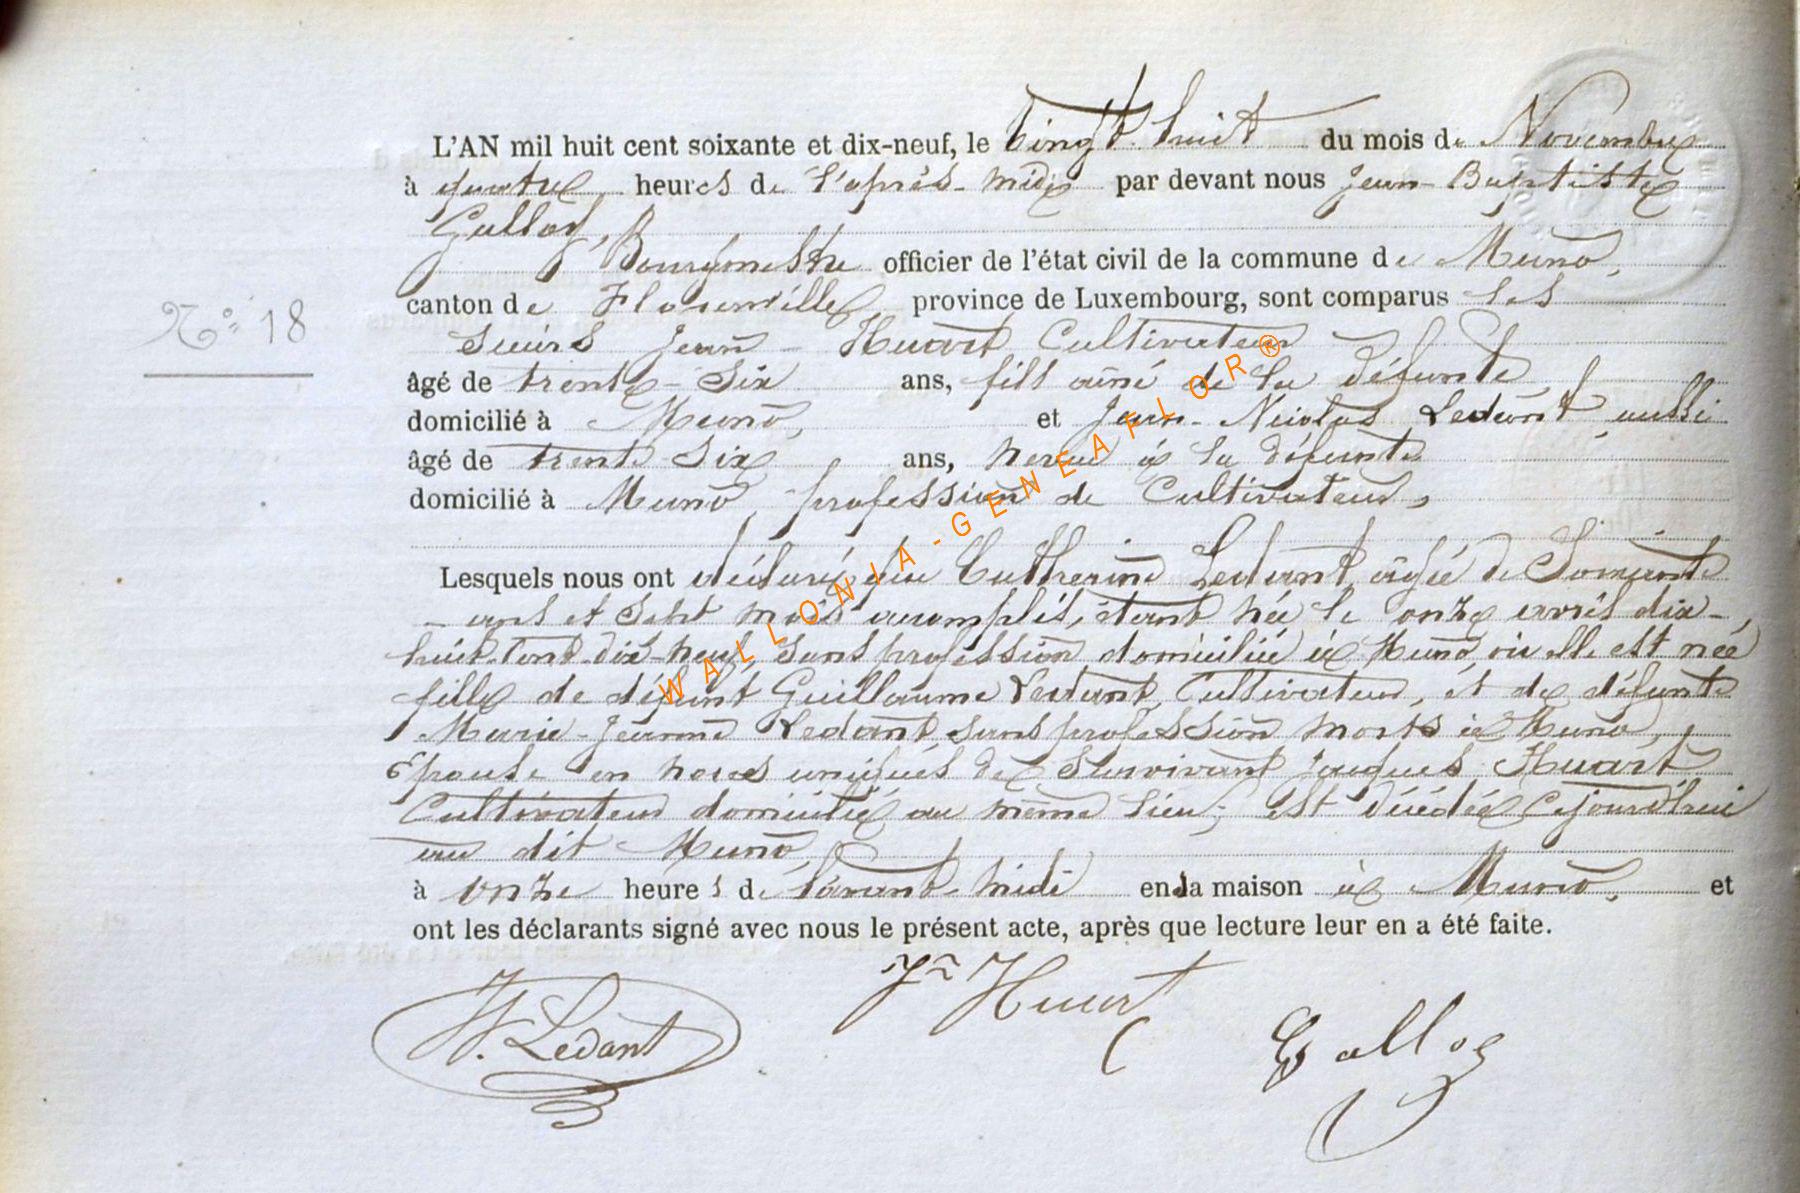 L'AN mil huit cent soixante et dix-neuf, le vingt-huit du mois de Novembre
à quatre heures de l'après-midi par devant nous Jean-Baptiste
Gulloy,
Bourgmestre officier de l'état civil de la commune de Muno,
N.° 18
canton de Florenville province de Luxembourg, sont comparus les
Sieurs Jean Huart Cultivateur
âgé de trente-Six ans, fils ainé de la défunte,
domicilié à Muno, et Jean-Nicolas Ledant aussi
âgé de trente Six ans, neveu à la défunte
domicilié à Muno, profession de Cultivateur,
Lesquels nous ont déclaré que Catherine Ledant, âgée de Soixante
ans et Sept mois accomplis, étant née le onze avril dix-
huit-cent-dix-neuf, sans profession domiciliée à Muno, où elle est née
fille de défunt Guillaume Ledant, Cultivateur, et de défunte
Marie-Jeanne Ledant, sans profession morts à Muno,
Epouse en noces uniques de Survivant Jacques Huart
Cultivateur domicilié au même lieu; est décédée Cejourd'hui
au dit Muno,
à onze heures de l'avant-midi en la maison à Muno, et
ont les déclarants signé avec nous le présent acte, après que lecture leur en a été faite.
Ledant
Jn Huart
WALLONIA-GENEAFLOR®